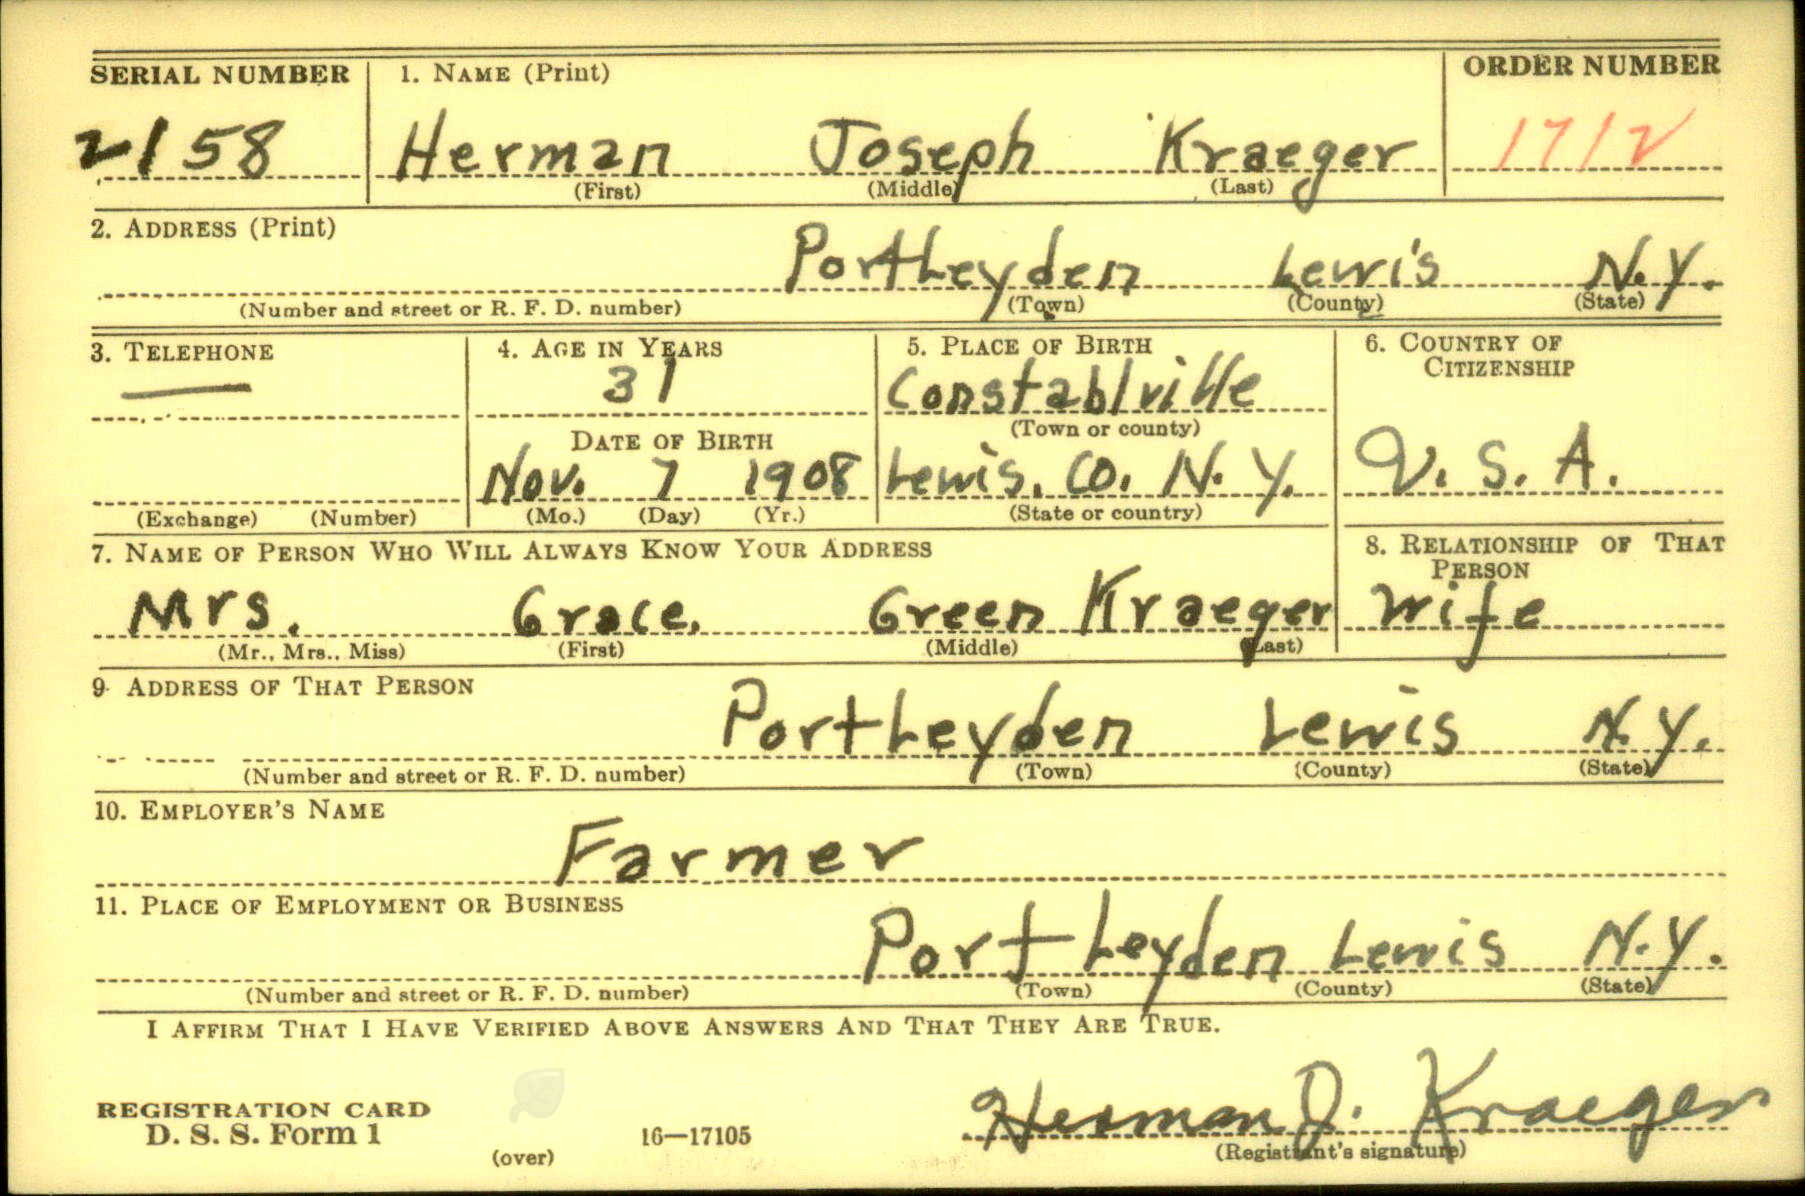 SERIAL NUMBER 1. NAME (Print) ORDER NUMBER
2158 Herman Joseph Kraeger 1712
(First) (Middle) (Last)
2. ADDRESS (Print)
Port Leyden Lewis N.Y.
(Number and street or R. F. D. number) (Town) (County) (State)
3. TELEPHONE 4. AGE IN YEARS 5. PLACE OF BIRTH 6. COUNTRY OF CITIZENSHIP
— 31 Constablville
(Town or county)
DATE OF BIRTH
Nov. 7 1908 Lewis. Co. N. Y. U. S. A.
(Exchange) (Number) (Mo.) (Day) (Yr.) (State or country)
7. NAME OF PERSON WHO WILL ALWAYS KNOW YOUR ADDRESS 8. RELATIONSHIP OF THAT PERSON
Mrs. Grace. Green Kraeger Wife
(Mr., Mrs., Miss) (First) (Middle) (Last)
9. ADDRESS OF THAT PERSON
Port Leyden Lewis N.Y.
(Number and street or R. F. D. number) (Town) (County) (State)
10. EMPLOYER'S NAME
Farmer
11. PLACE OF EMPLOYMENT OR BUSINESS
Port Leyden Lewis N.Y.
(Number and street or R. F. D. number) (Town) (County) (State)
I AFFIRM THAT I HAVE VERIFIED ABOVE ANSWERS AND THAT THEY ARE TRUE.
REGISTRATION CARD
D. S. S. Form 1 16—17105 Herman J. Kraeger
(over) (Registrant's signature)